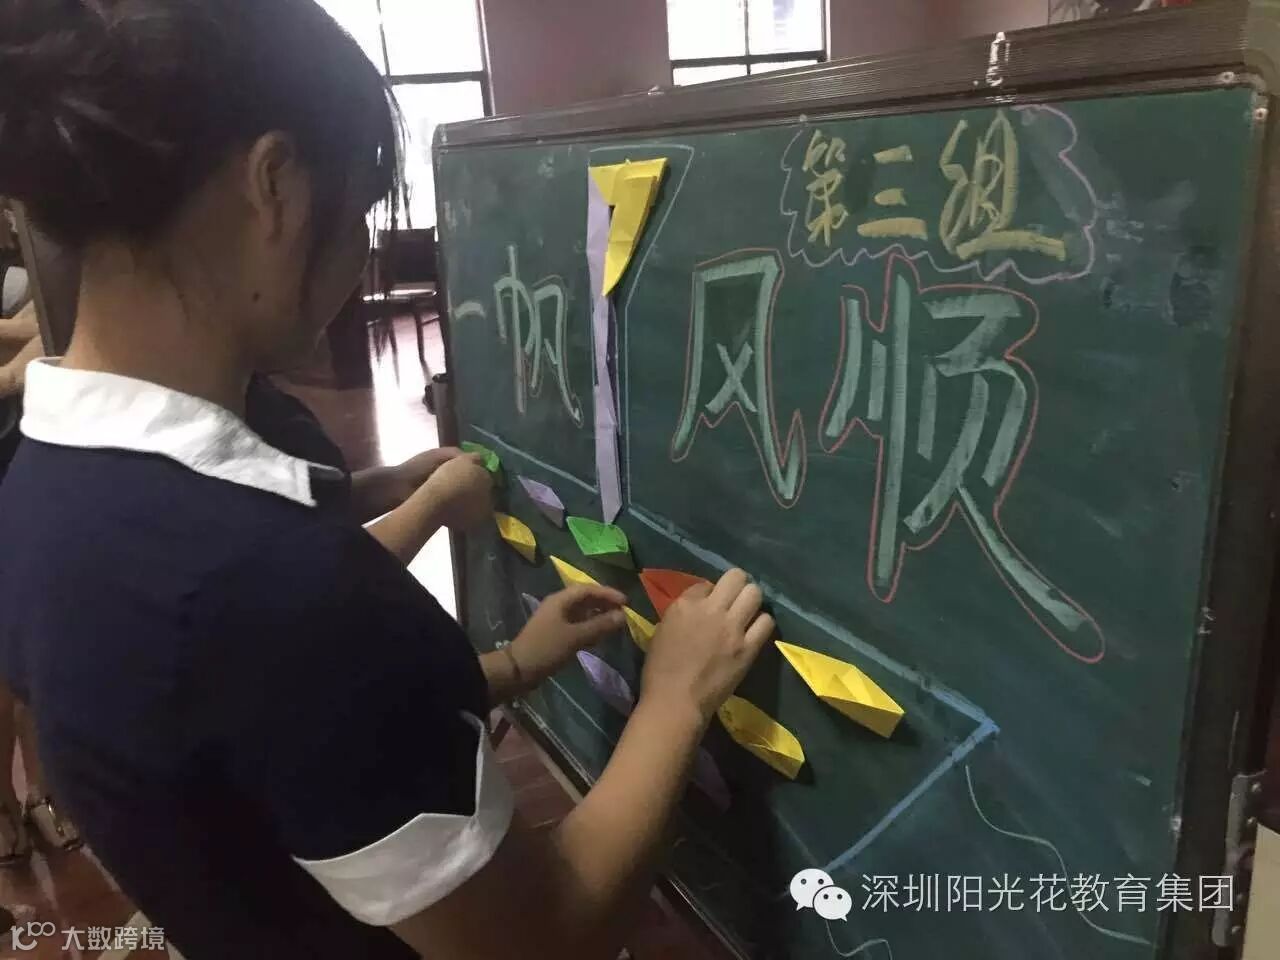 第三组
一帆风顺
深圳阳光花教育集团
大数跨境